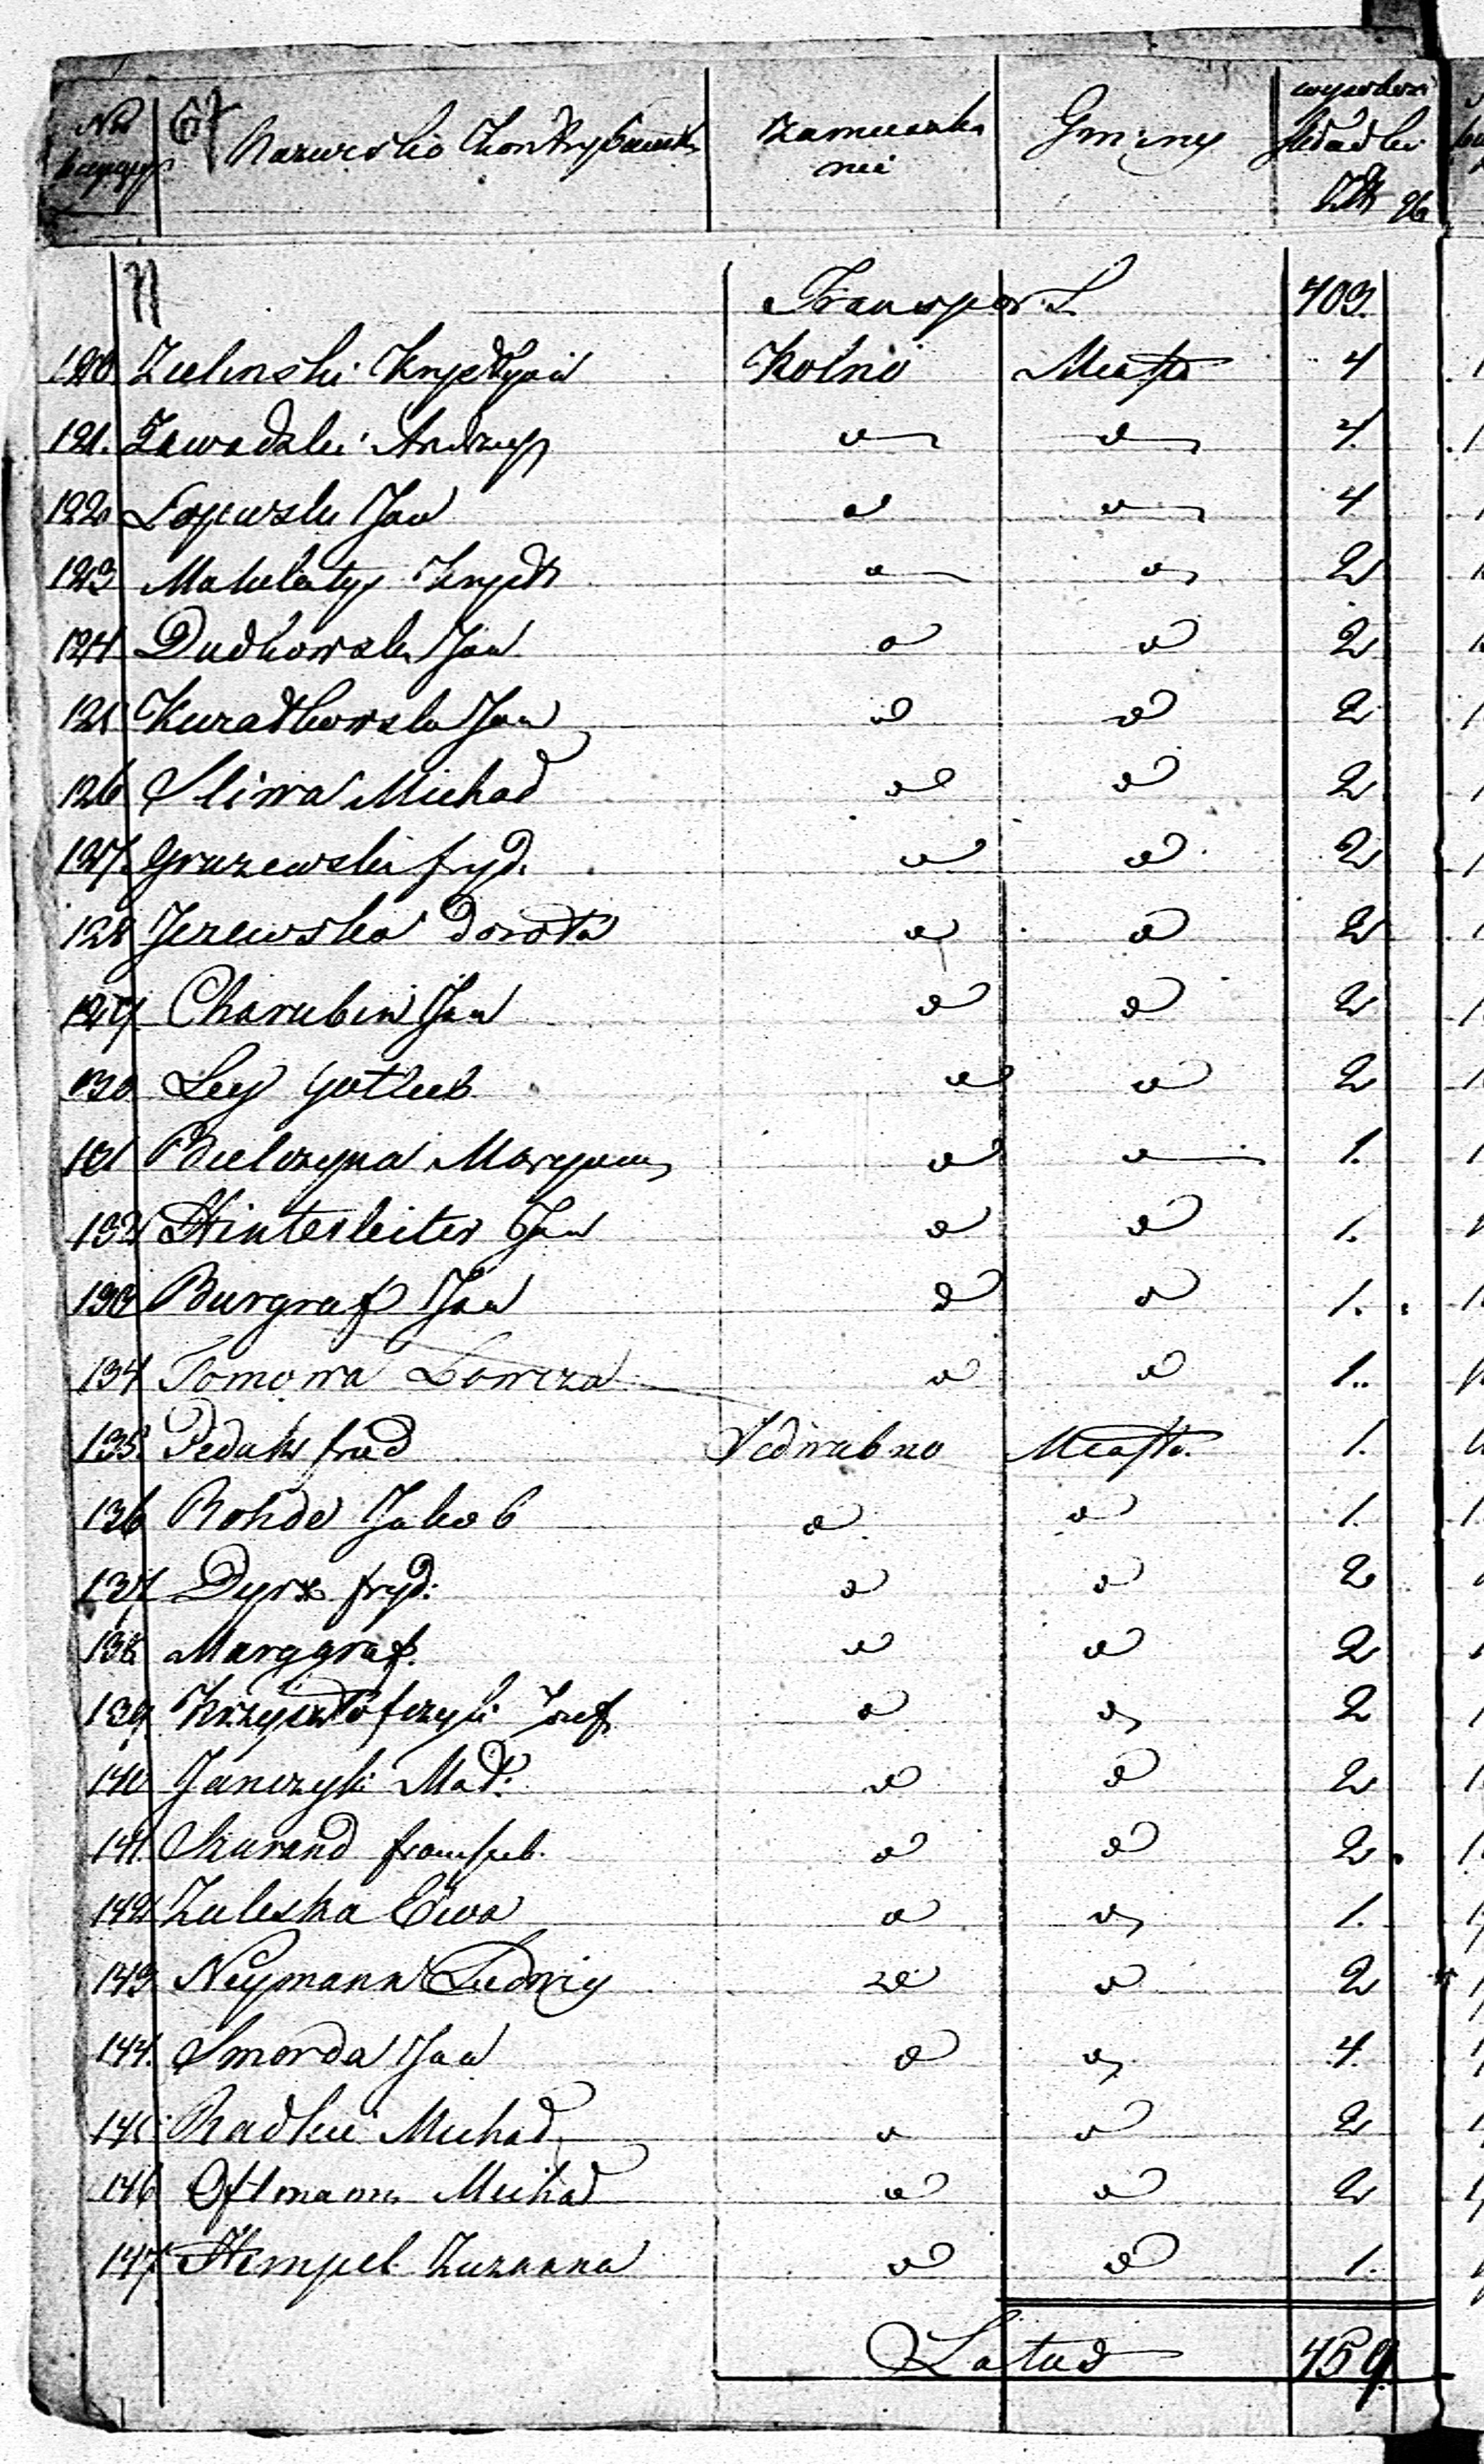 Nro 67 Nazwisko Kontrybuenta Zamieszkanie Gminy
Złt gb
Transport 403.
120 Zielinski Krystyan Kolno Miasto 4
121. Zawadzki Andrzey 4.
122 Łojewski Jan 4
123 Makulaty Kryst 2
124 Dudkowski Jan 2
125 Kuratkowski Jan 2
126 Sliwa Michał 2
127. Gruzewski fryd. 2
128 Jezewska Dorota 2
129 Charubin Jan 2
130 Ley Gotlieb 2
131 Bielczyna Maryanna 1.
132 Hinterleiter Jan 1.
133 Burgraf Jan 1.
134 Tomowa Lowiza 1.
135. fred Jedwabno Miasto. 1.
136 Rohde Jakob 1.
137 Dyrx fryd: 2
138 Marggraf. 2
139. Krzysztofczyk Jozef 2
140 Janczyk Mat: 2
141. 2.
142 Zaleska Ewa 1.
143 Neymann Ludwig 2
144. Smorda Jan 4.
145 Radkie Michał 2
146 Oftmann Michał 2
147 Hempel Zuzanna 1.
Latus 459